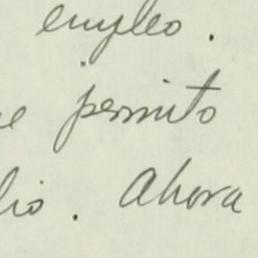 empleo.
permito
. Ahora